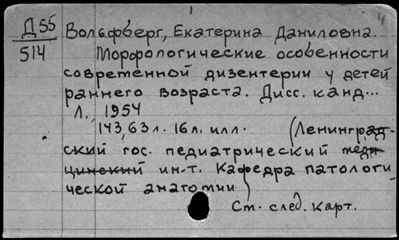 Д55 Вольфберг, Екатерина Даниловна.
514 Морфологические особенности
современной дизентерии у детей
раннего возраста. Дисс. канд...
Л., 1954
143,63л. 16л. илл. (Ленинград-
ский гос. педиатрический меди-
цинский ин-т. Кафедра патологи
ческой анатомии)
См. след. карт.